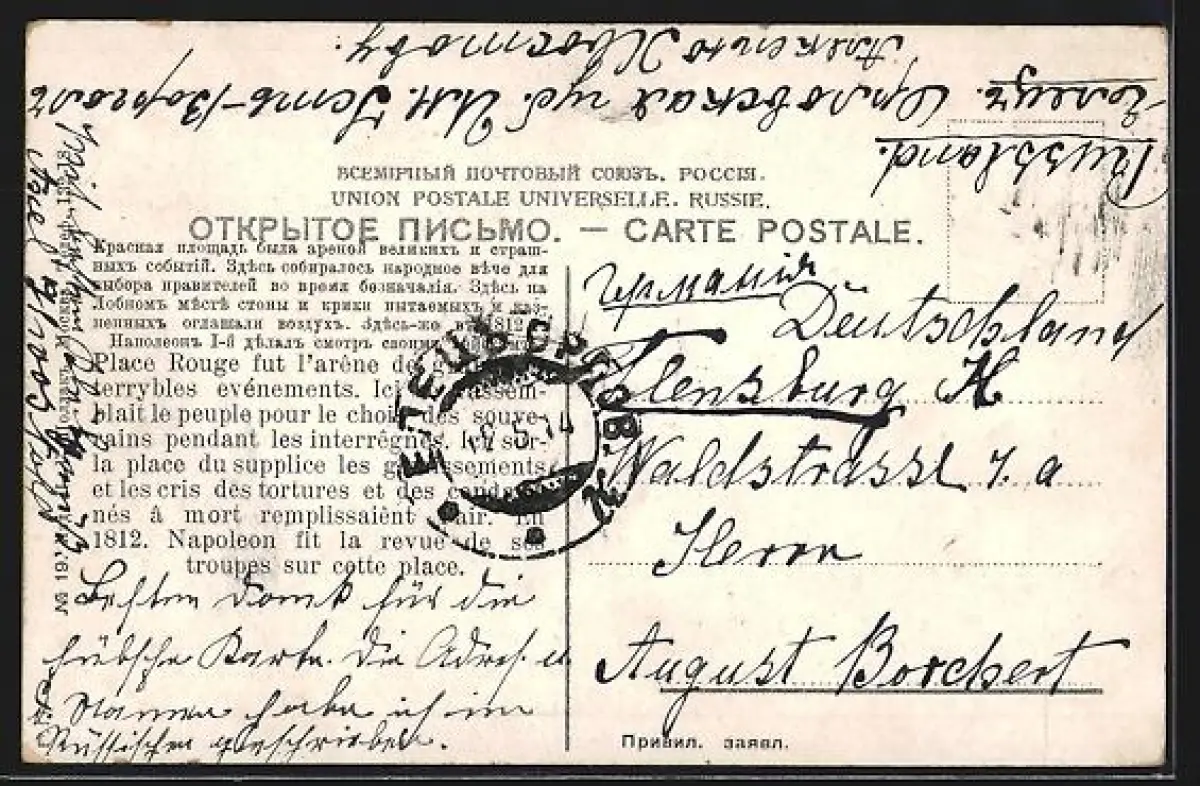 Russland.
Елецъ. Орловская губ. Им. Усть-Воргалъ
Алексѣю Хвостову.
ВСЕМІРНЫЙ ПОЧТОВЫЙ СОЮЗЪ. РОССІЯ.
UNION POSTALE UNIVERSELLE. RUSSIE.
ОТКРЫТОЕ ПИСЬМО. — CARTE POSTALE.
Красная площадь была ареной великихъ и страш-
ныхъ событій. Здѣсь собиралось народное вѣче для
выбора правителей во время безначалія. Здѣсь на
Лобномъ мѣстѣ стоны и крики пытаемыхъ и каз-
ненныхъ оглашали воздухъ. Здѣсь-же въ 1812
Наполеонъ I-й дѣлалъ смотръ своимъ
Place Rouge fut l'arêne de
terrybles evénements. Ici rassem-
blait le peuple pour le choix des souve-
rains pendant les interrégnes. Ici sur-
la place du supplice les gémissements
et les cris des tortures et des condam-
nés â mort remplissaiênt l'air. En
1812. Napoleon fit la revue de ses
troupes sur cette place.
Besten Dank für die
hübsche Karte. Die Adres. u
Namen habe ich im
Russischen geschrieben.
Германія
Deutschland
Flensburg H
Waldstrasse 7. a
Herrn
August Borchert
Привил. заявл.
№ 19.
ЕЛЕЦЪ